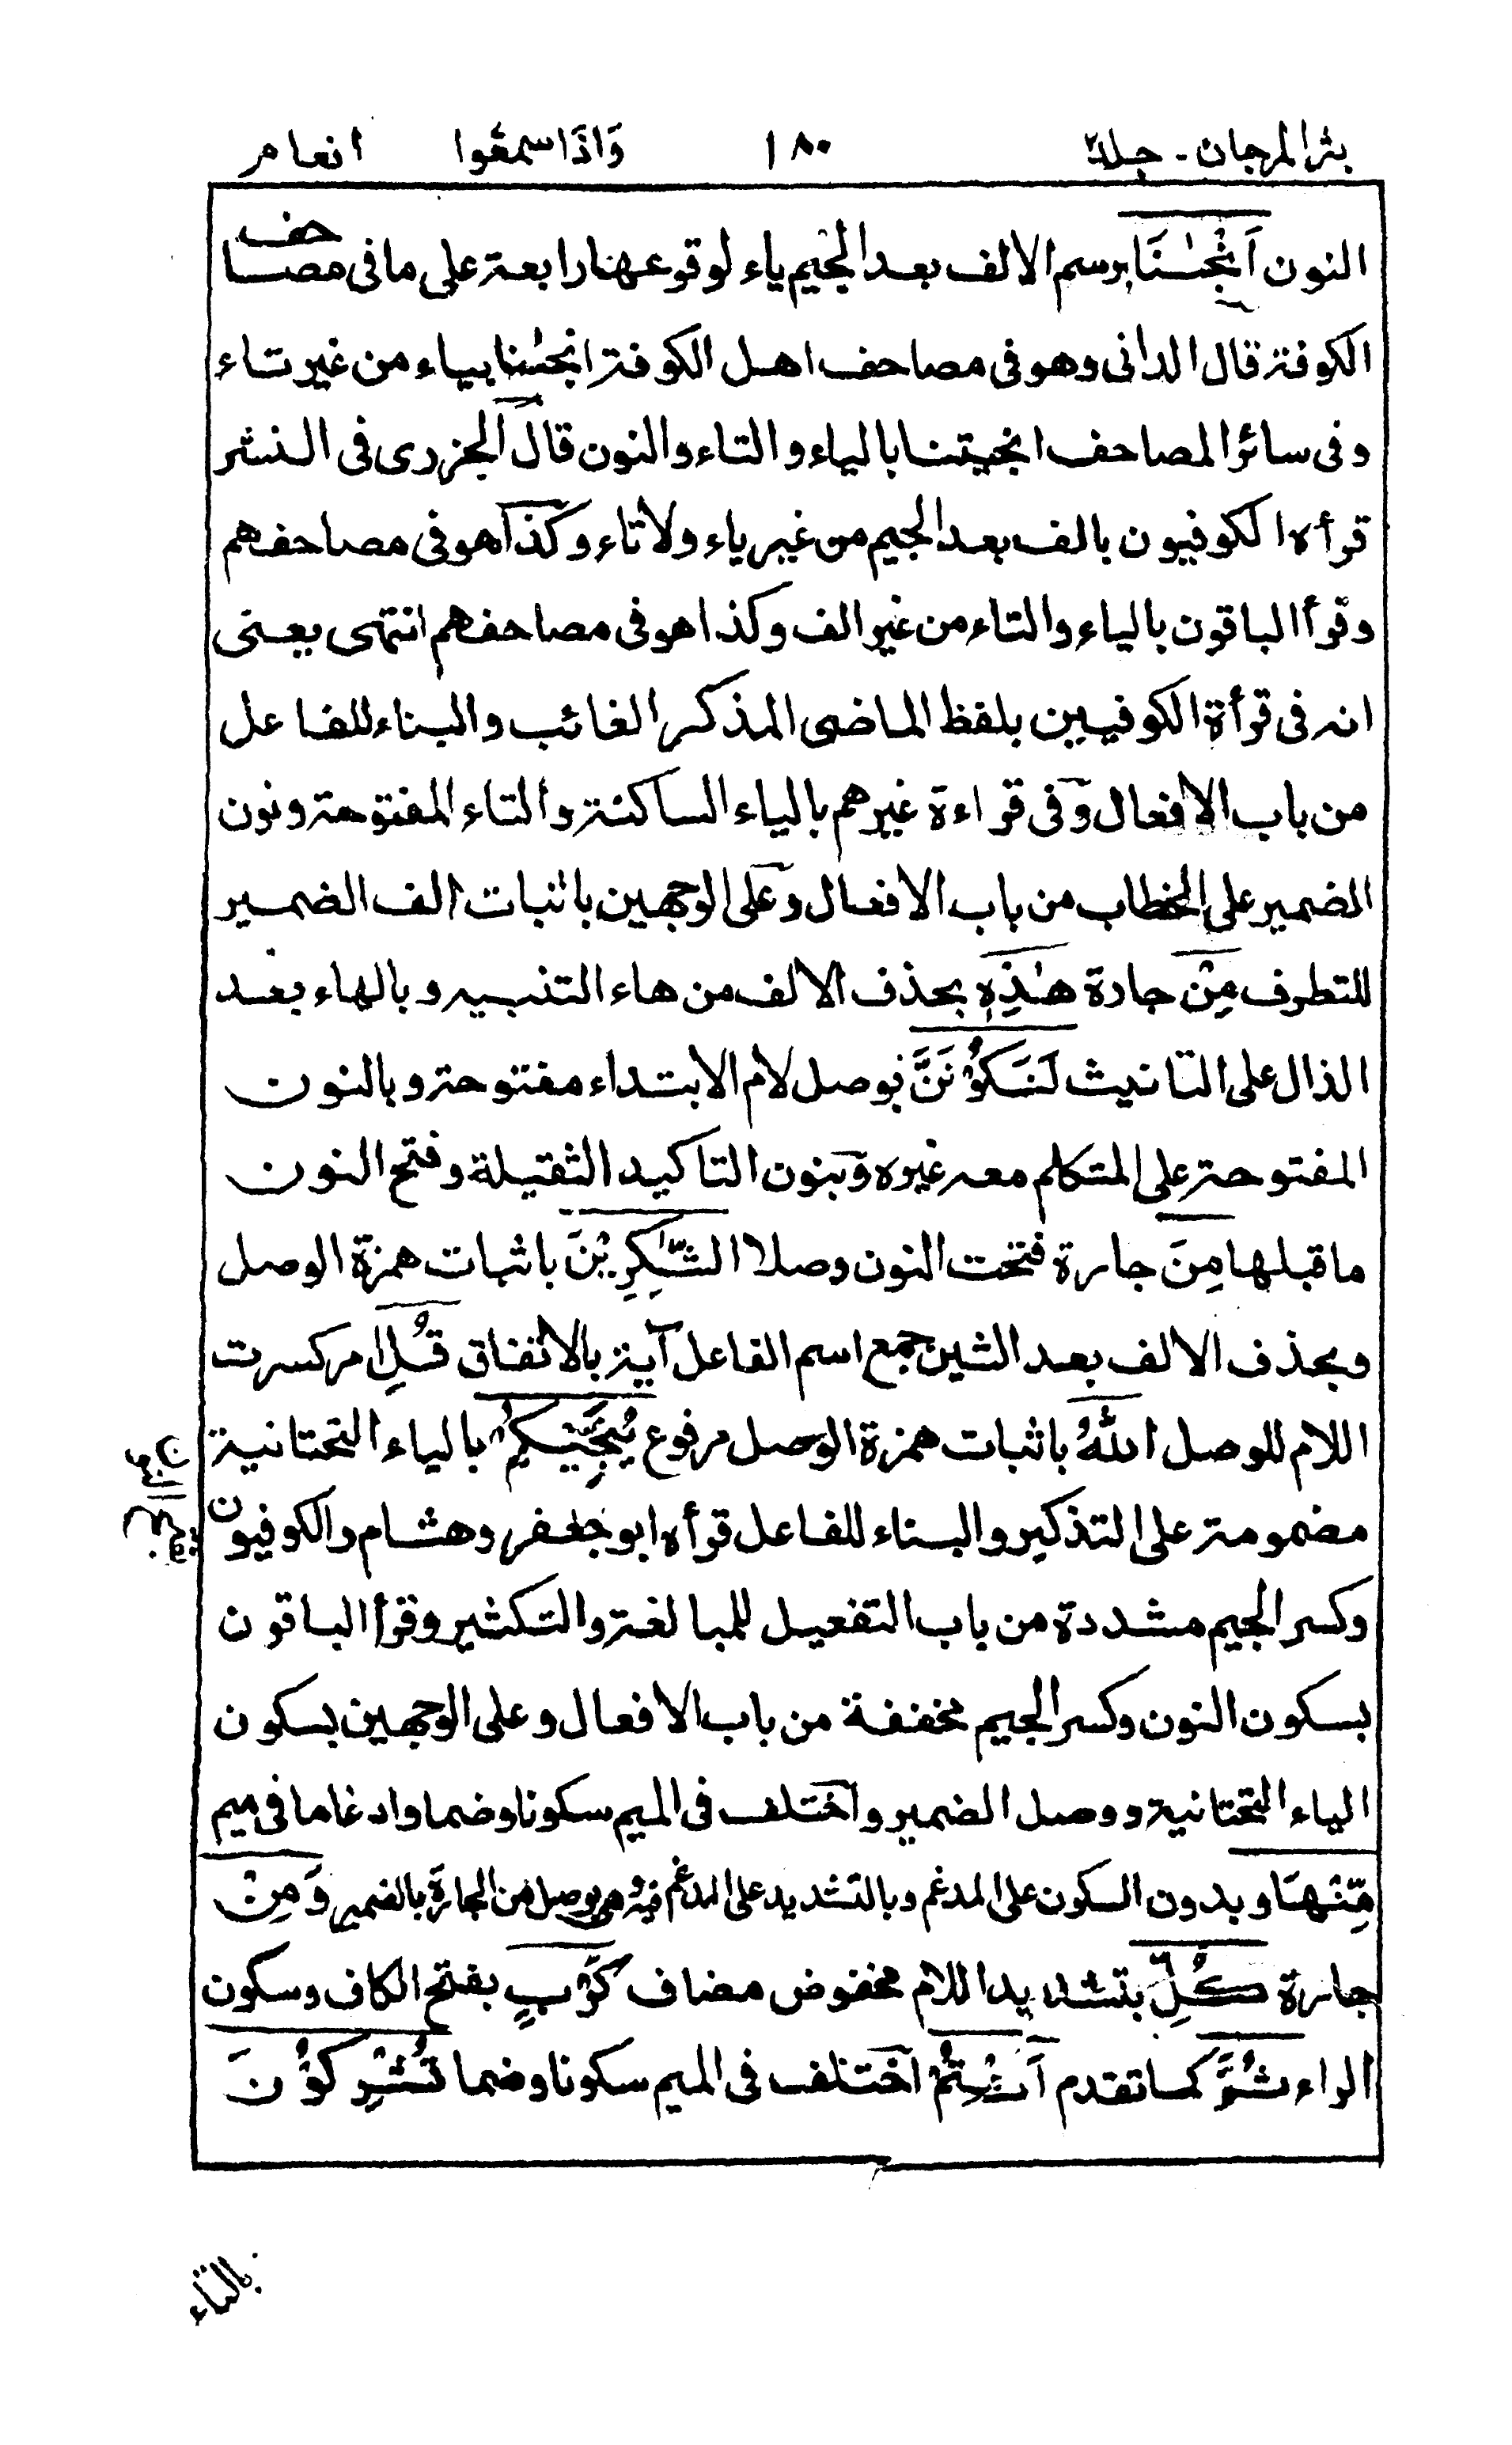 نثر المرجان - جلد٢ ١٨٠ وَاذَا سمعُوا انعام
النون اَنْجٰىنَا برسم الالف بعد الجيم ياء لوقوعها رابعة على ما فى مصاحف
الكوفة قال الدانى وهو فى مصاحف اهل الكوفة انجىٰنا بياء من غير تاء
وفى سائر المصاحف انجيتنا بالياء والتاء والنون قال الجزرى فى النشر
قرأه الكوفيون بالف بعد الجيم من غير ياء ولا تاء وكذا هو فى مصاحفهم
وقرأ الباقون بالياء والتاء من غير الف وكذا هو فى مصاحفهم انتهى يعنى
انه فى قرأة الكوفيين بلفظ الماضى المذكر الغائب والبناء للفاعل
من باب الافعال وفى قراءة غيرهم بالياء الساكنة والتاء المفتوحة ونون
الضمير على الخطاب من باب الافعال وعلى الوجهين باثبات الف الضمير
للتطرف مِنْ جارة هٰذِهٖ بحذف الالف من هاء التنبيه وبالهاء بعد
الذال على التانيث لَنَكُوْنَنَّ بوصل لام الابتداء مفتوحة وبالنون
المفتوحة على المتكلم معه غيره وبنون التاكيد الثقيلة وفتح النون
ما قبلها مِنَ جارة فتحت النون وصلا الشّٰكِرِيْنَ باثبات همزة الوصل
وبحذف الالف بعد الشين جمع اسم الفاعل آية بالاتفاق قُلِ امر كسرت
اللام للوصل اللّٰهُ باثبات همزة الوصل مرفوع يُنَجِّيْكُمْ بالياء التحتانية
مضمومة على التذكير والبناء للفاعل قرأه ابو جعفر وهشام والكوفيون
بفتح النون
وكسر الجيم مشددة من باب التفعيل للمبالغة والتكثير وقرأ الباقون
بسكون النون وكسر الجيم مخففة من باب الافعال وعلى الوجهين بسكون
الياء التحتانية ووصل الضمير واختلف فى الميم سكونا وضما وادغاما فى ميم
مِّنْهَا وبدون السكون على المدغم وبالتشديد على المدغم فيه وهو بوصل من الجارة بالضمير وَمِنْ
جارة كُلِّ بتشديد اللام مخفوض مضاف كَرْبٍ بفتح الكاف وسكون
الراء ثُمَّ كما تقدم اَنْتُمْ اختلف فى الميم سكونا وضما تُشْرِكُوْنَ
بالتاء